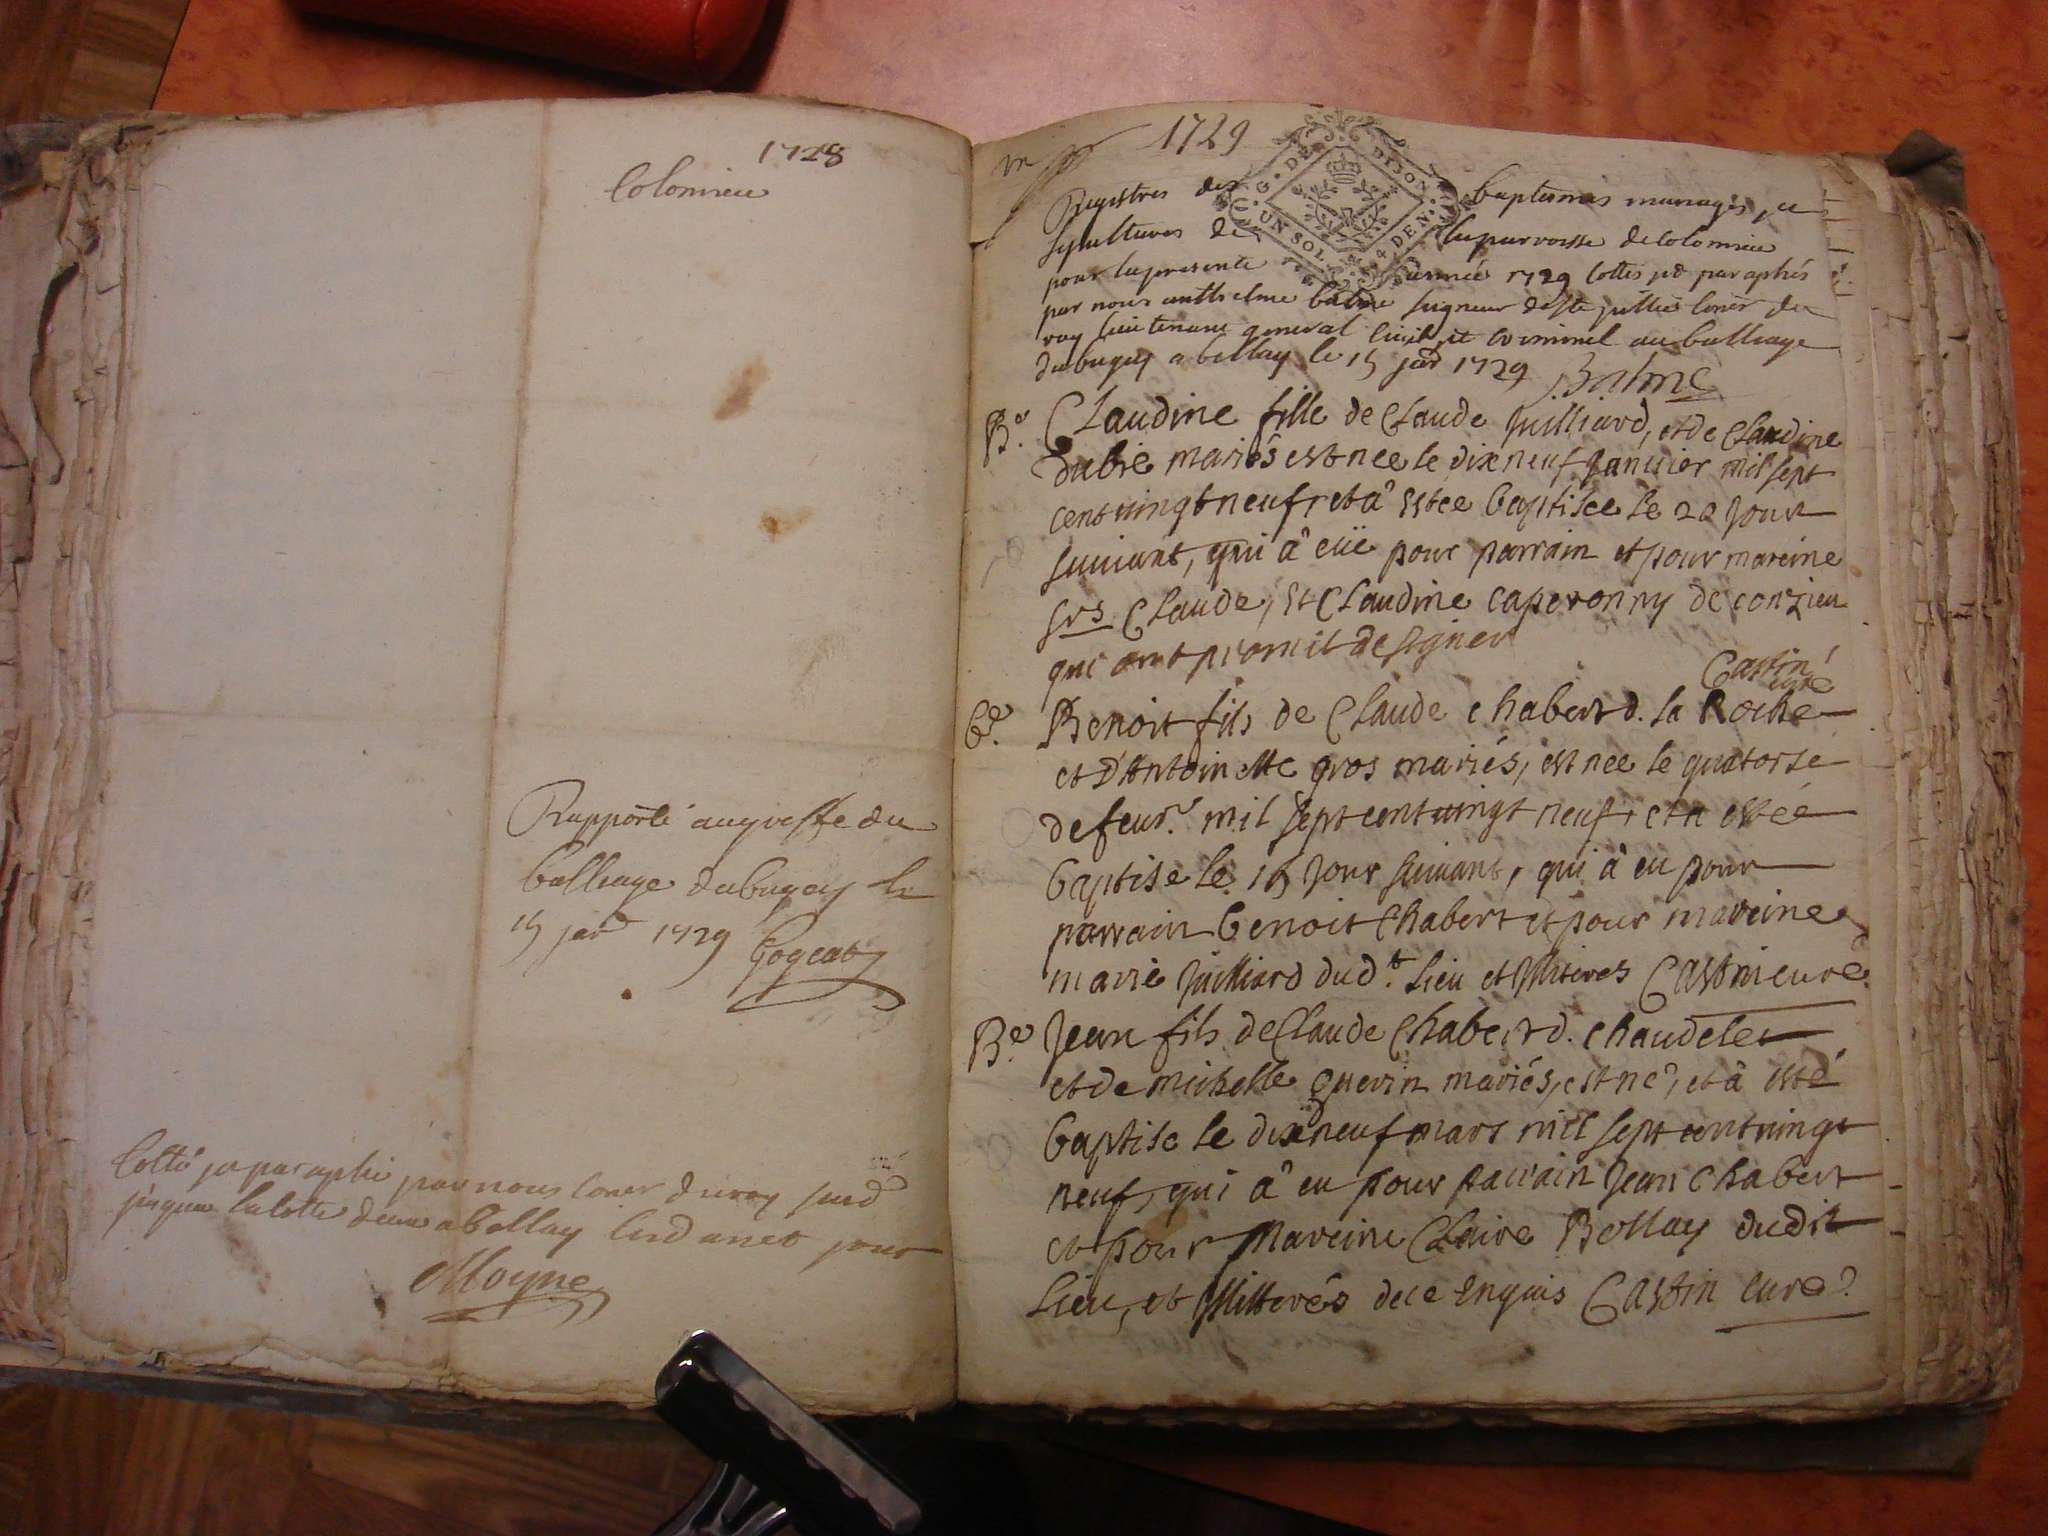 1728
Colomieu
Rapporté au greffe du
balliage du bugey le
15 janr 1729 Gogeat
Cotté et paraphé par nous coner du roy
a bellay
Moyne
1729
G. DE DIJON
UN SOL 4 DEN.
Registres des baptemes mariages, et
sepultures de la parroisse de Colomieu
pour la presente année 1729 Cottés et paraphés
par nous anthelme balme seigneur de Ste Jullie coner du
roy lieutenant general civil, et criminel au balliage
du bugey a bellay le 15 janr 1729 Balme
Be. Claudine fille de Claude Juilliard, et de Claudine
dubié mariés est nee le dixneuf Januier mil sept
cent uingt neuf, et â estée baptisee le 20 jour
suiuant, qui â eüe pour parrain et pour mareine
srs Claude, et Claudine caperonny de conzieu
qui ont promit de signer
Castin curé
Be. Benoit fils de Claude chabert d. la Roche
et D'Antoinette gros mariés, est nee le quatorse
de feur. mil sept cent uingt neuf, et a estée
baptise le 15 jour suiuant, qui â eu pour
parrain benoit Chabert et pour mareine
marie Juilliard dud.t lieu et Illiterés Castin curé.
Be. Jean fils de Claude Chabert d. chaudelet
et de michelle guerin mariés, est né, et â esté
baptise le dixneuf mars mil sept cent uingt
neuf, qui â eu pour parrain Jean Chabert
et pour Mareine Claire Bellay dudit
lieu, et Illitterés de ce Enquis Castin curé